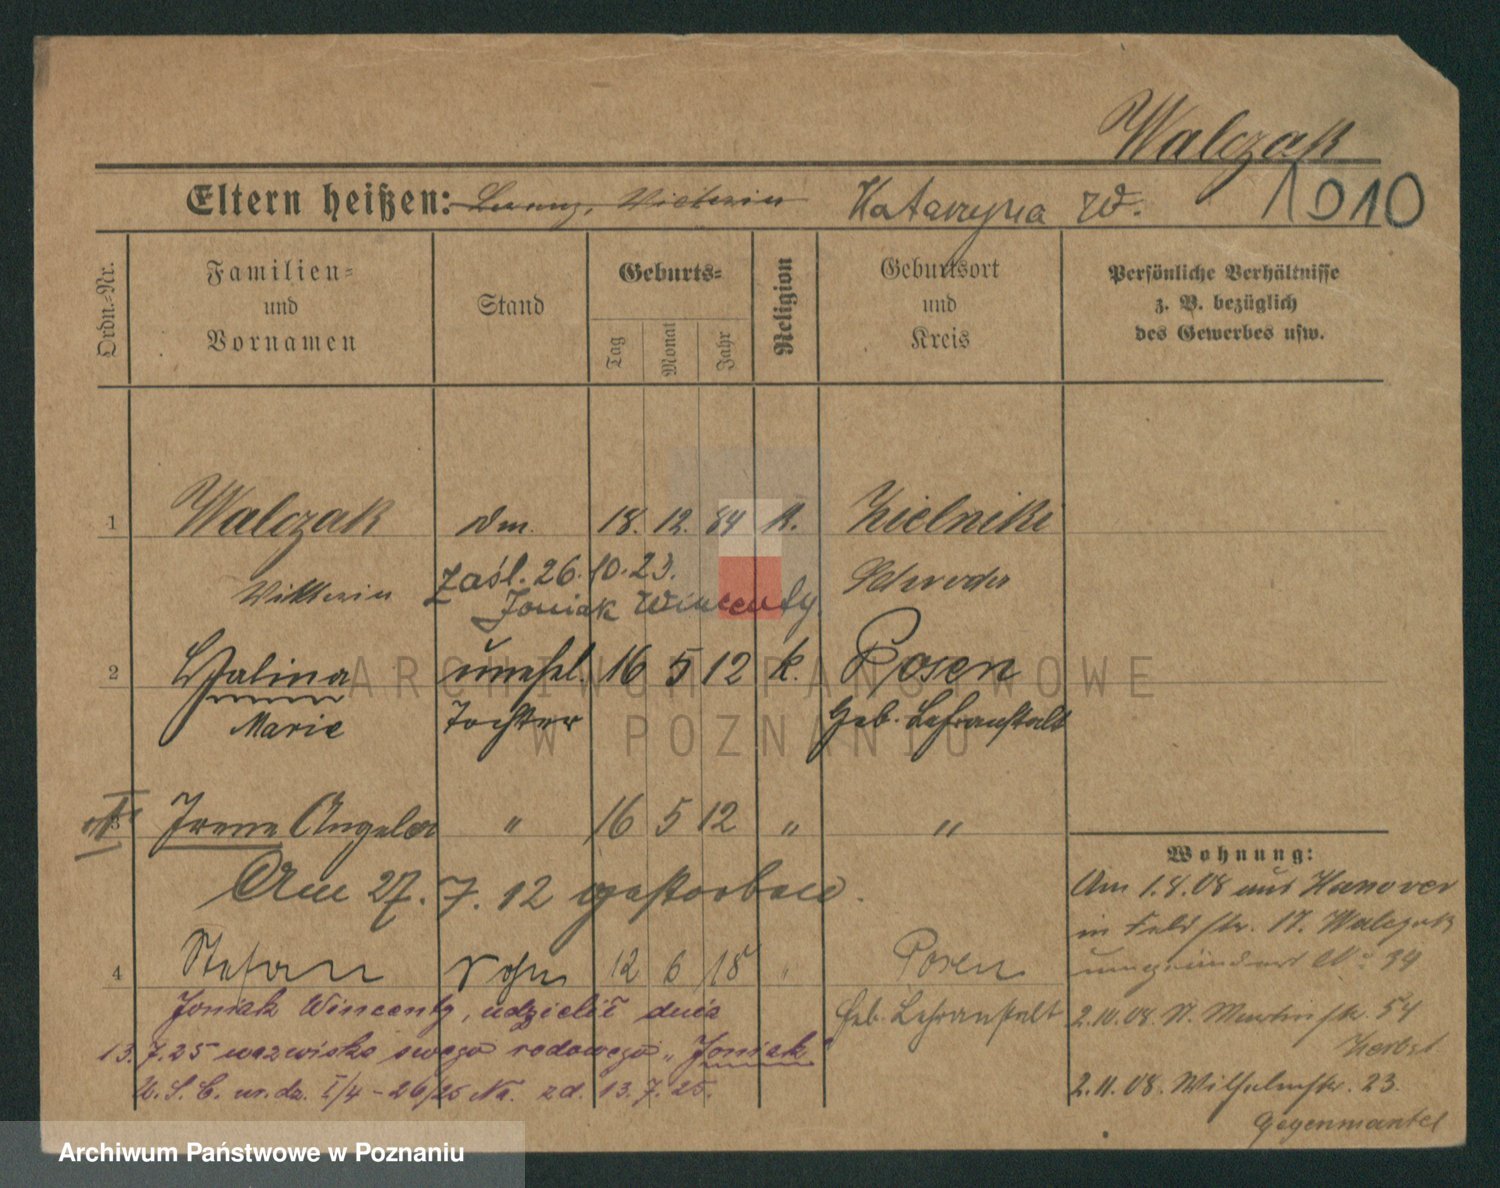 Walczak
Eltern heißen: Katarzyna zd. 1010
Ordn.-Nr.
Familien- und Vornamen
Stand
Geburts-
Tag
Monat
Jahr
Religion
Geburtsort und Kreis
Persönliche Verhältnisse z. B. bezüglich des Gewerbes usw.
1 Walczak 18. 12. 84 k. Zielniki
zaśl. 26.10.23. Schroda
Joniak Wincenty
2 Halina unehel. 16 5 12 k. Posen
Marie Tochter Geb. Lehranstalt
3 Irene Angela " 16 5 12 " "
Am 27. 7. 12 gestorben.
4 Stefan Sohn 12 6 18 " Posen
Geb. Lehranstalt
Joniak Wincenty, udzielił dnia
13.7.25 nazwiska swego rodowego „Joniak"
U.S.C. I/4 - 26/25 zd. 13.7.25.
Wohnung:
Am 1.8.08 aus Hanover
in Feldstr. 17. Walczak
2.10.08. St. Martinstr. 54
Herbst
2.11.08. Wilhelmstr. 23.
Gegenmantel
ARCHIWUM PAŃSTWOWE
W POZNANIU
Archiwum Państwowe w Poznaniu